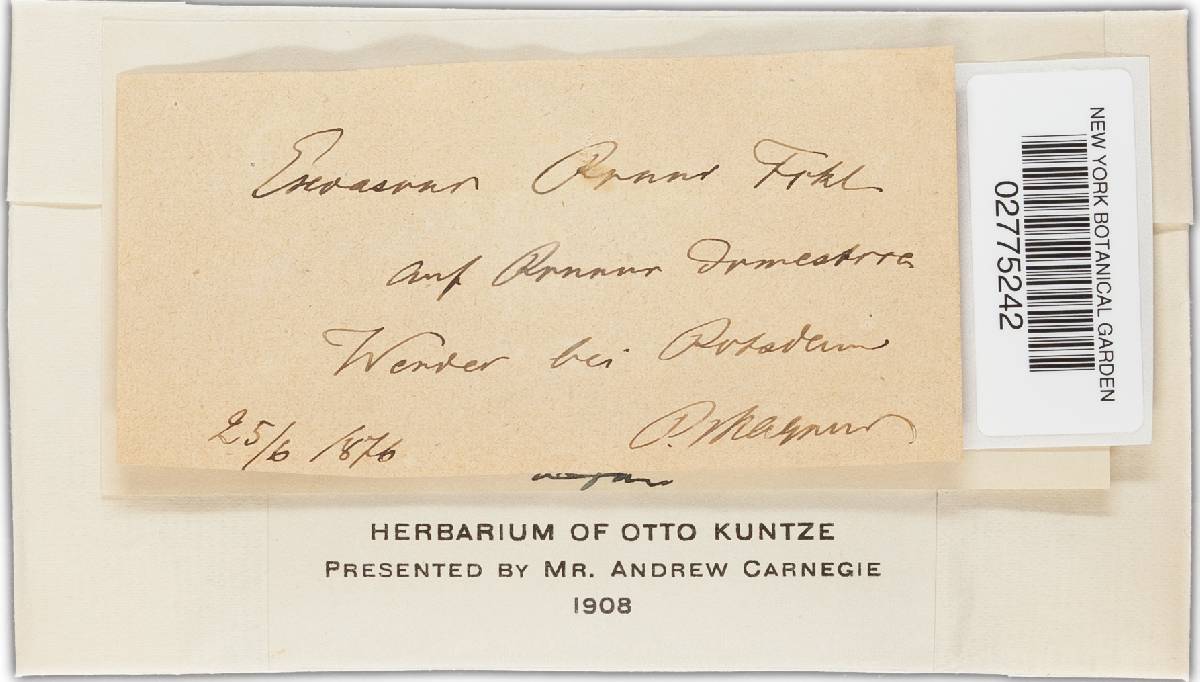 Exoascus Pruni Fckl
auf Prunus domestica
Werder bei Potsdam
25/6 1876 P. Magnus
HERBARIUM OF OTTO KUNTZE
PRESENTED BY MR. ANDREW CARNEGIE
1908
NEW YORK BOTANICAL GARDEN
02775242